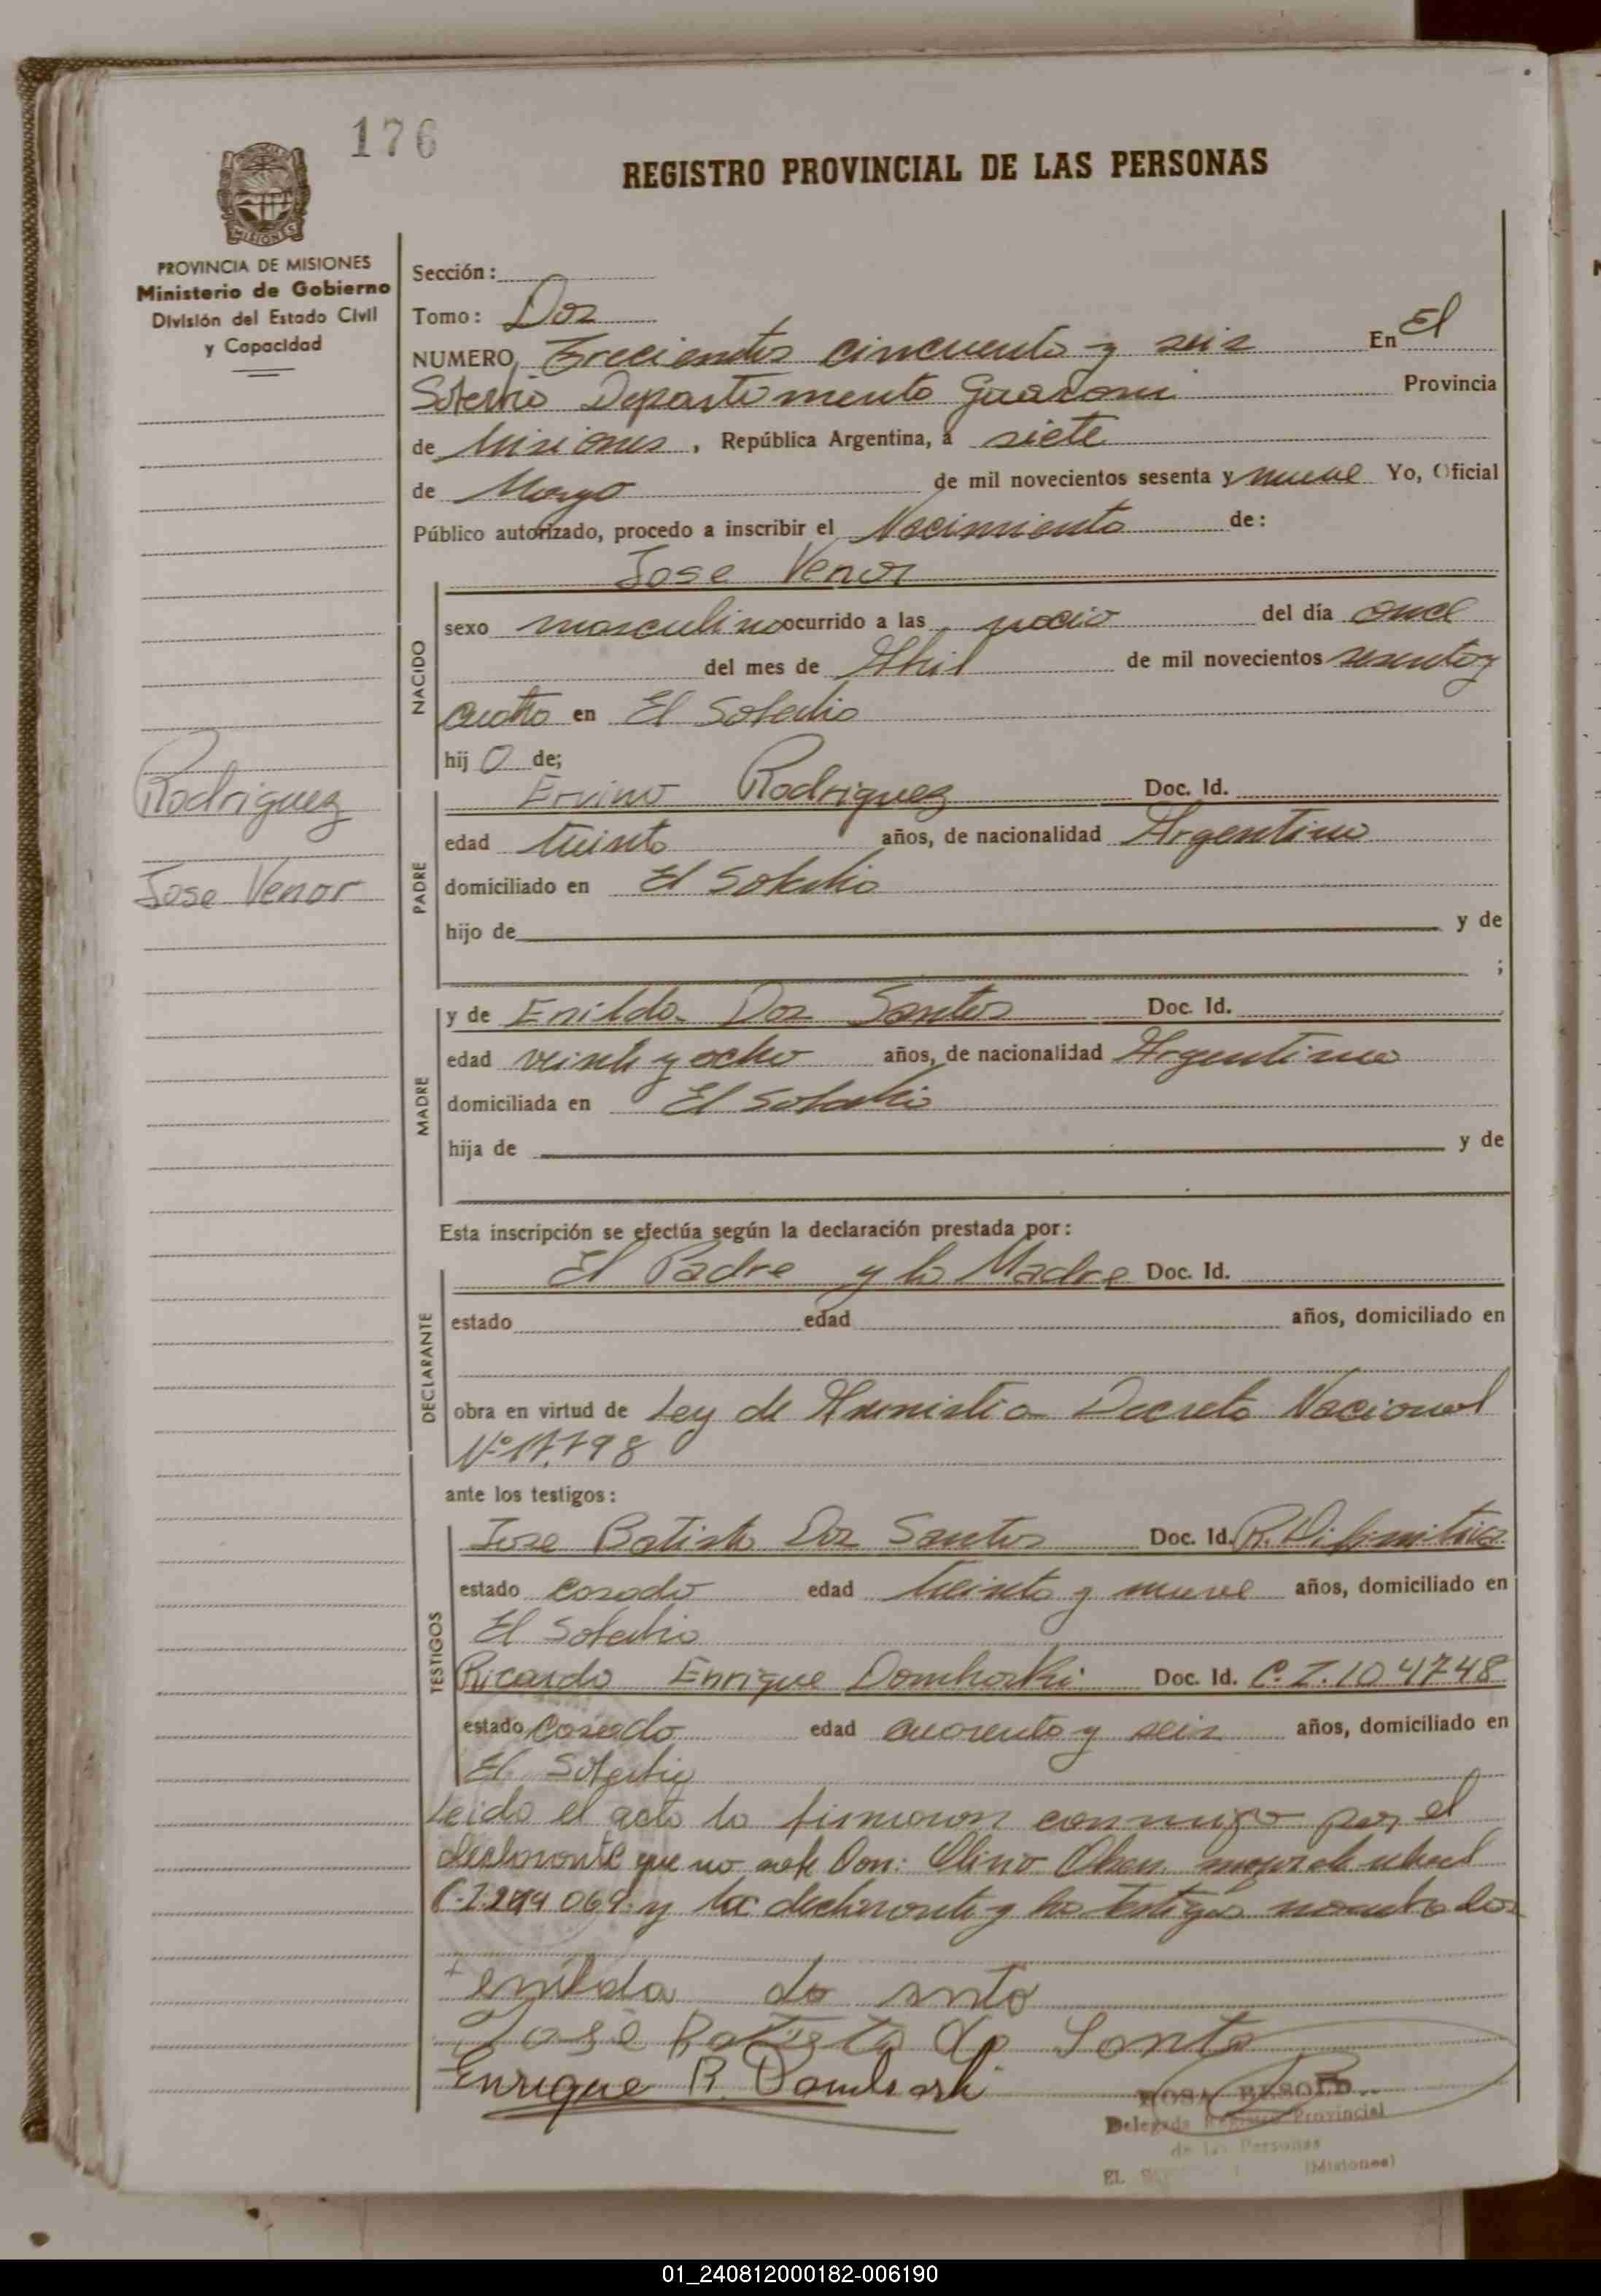 176
REGISTRO PROVINCIAL DE LAS PERSONAS
MISIONES
PROVINCIA DE MISIONES
Ministerio de Gobierno
División del Estado Civil
y Capacidad
Sección:
Tomo: Dos
NUMERO, Treciendos cincuenta y seis En El
Soberbio Departamento Guarani Provincia
de Misiones, República Argentina, a siete
de Mayo de mil novecientos sesenta y nueve Yo, Oficial
Público autorizado, procedo a inscribir el Nacimiento de:
Jose Venor
NACIDO
sexo masculino ocurrido a las del día once
del mes de Abril de mil novecientos sesenta y
cuatro en El Soberbio
hijo de;
Rodriguez
Jose Venor
PADRE
Ervino Rodriguez Doc. Id.
edad treinta años, de nacionalidad Argentino
domiciliado en El Soberbio
hijo de y de
;
MADRE
y de Enilda Dos Santos Doc. Id.
edad veinte y ocho años, de nacionalidad Argentina
domiciliada en El Soberbio
hija de y de
Esta inscripción se efectúa según la declaración prestada por:
DECLARANTE
El Padre y la Madre Doc. Id.
estado edad años, domiciliado en
obra en virtud de Ley de Amnistia Decreto Nacional
Nº 17.798
ante los testigos:
TESTIGOS
Jose Batista Dos Santos Doc. Id.
estado casado edad treinta y nueve años, domiciliado en
El Soberbio
Ricardo Enrique Domhorski Doc. Id. C.I. 104748
estado Casado edad cuarenta y seis años, domiciliado en
El Soberbio
Leido el acta la firmaron conmigo por el
declarante que no sabe Don: Olsen mayor de edad
C.I. 069 y la declarante y los testigos nombrados
enilda do snto
José Batista do Santo
Enrique R. Domhorski
ROSA BESOLD
Delegada Registro Provincial
de las Personas
EL (Misiones)
01_240812000182-006190